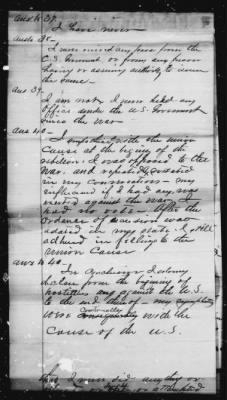 Ans to 37.
I have never
Ans to 38.
I never received any pass from the
C.S. Government or from any person
having or assuming authority to issue
the same.
Ans 39.
I am not, I never held any
office under the U.S. Government
since the war
Ans 40.
I sympathized with the union
Cause at the beginning of the
rebellion. I was opposed to the
War, and repeatedly
in my conversations my
influence if I had any was
exerted against the war. I
had no vote. After the
Ordinance of secession was
passed in my state I still
adhered in feeling to the
Union Cause
Ans to 40.
In Conclusion I solemnly
declare from the beginning of
hostilities against the U.S.
to the end thereof my sympathies
were Constantly with the
Cause of the U.S.
I never did any thing or